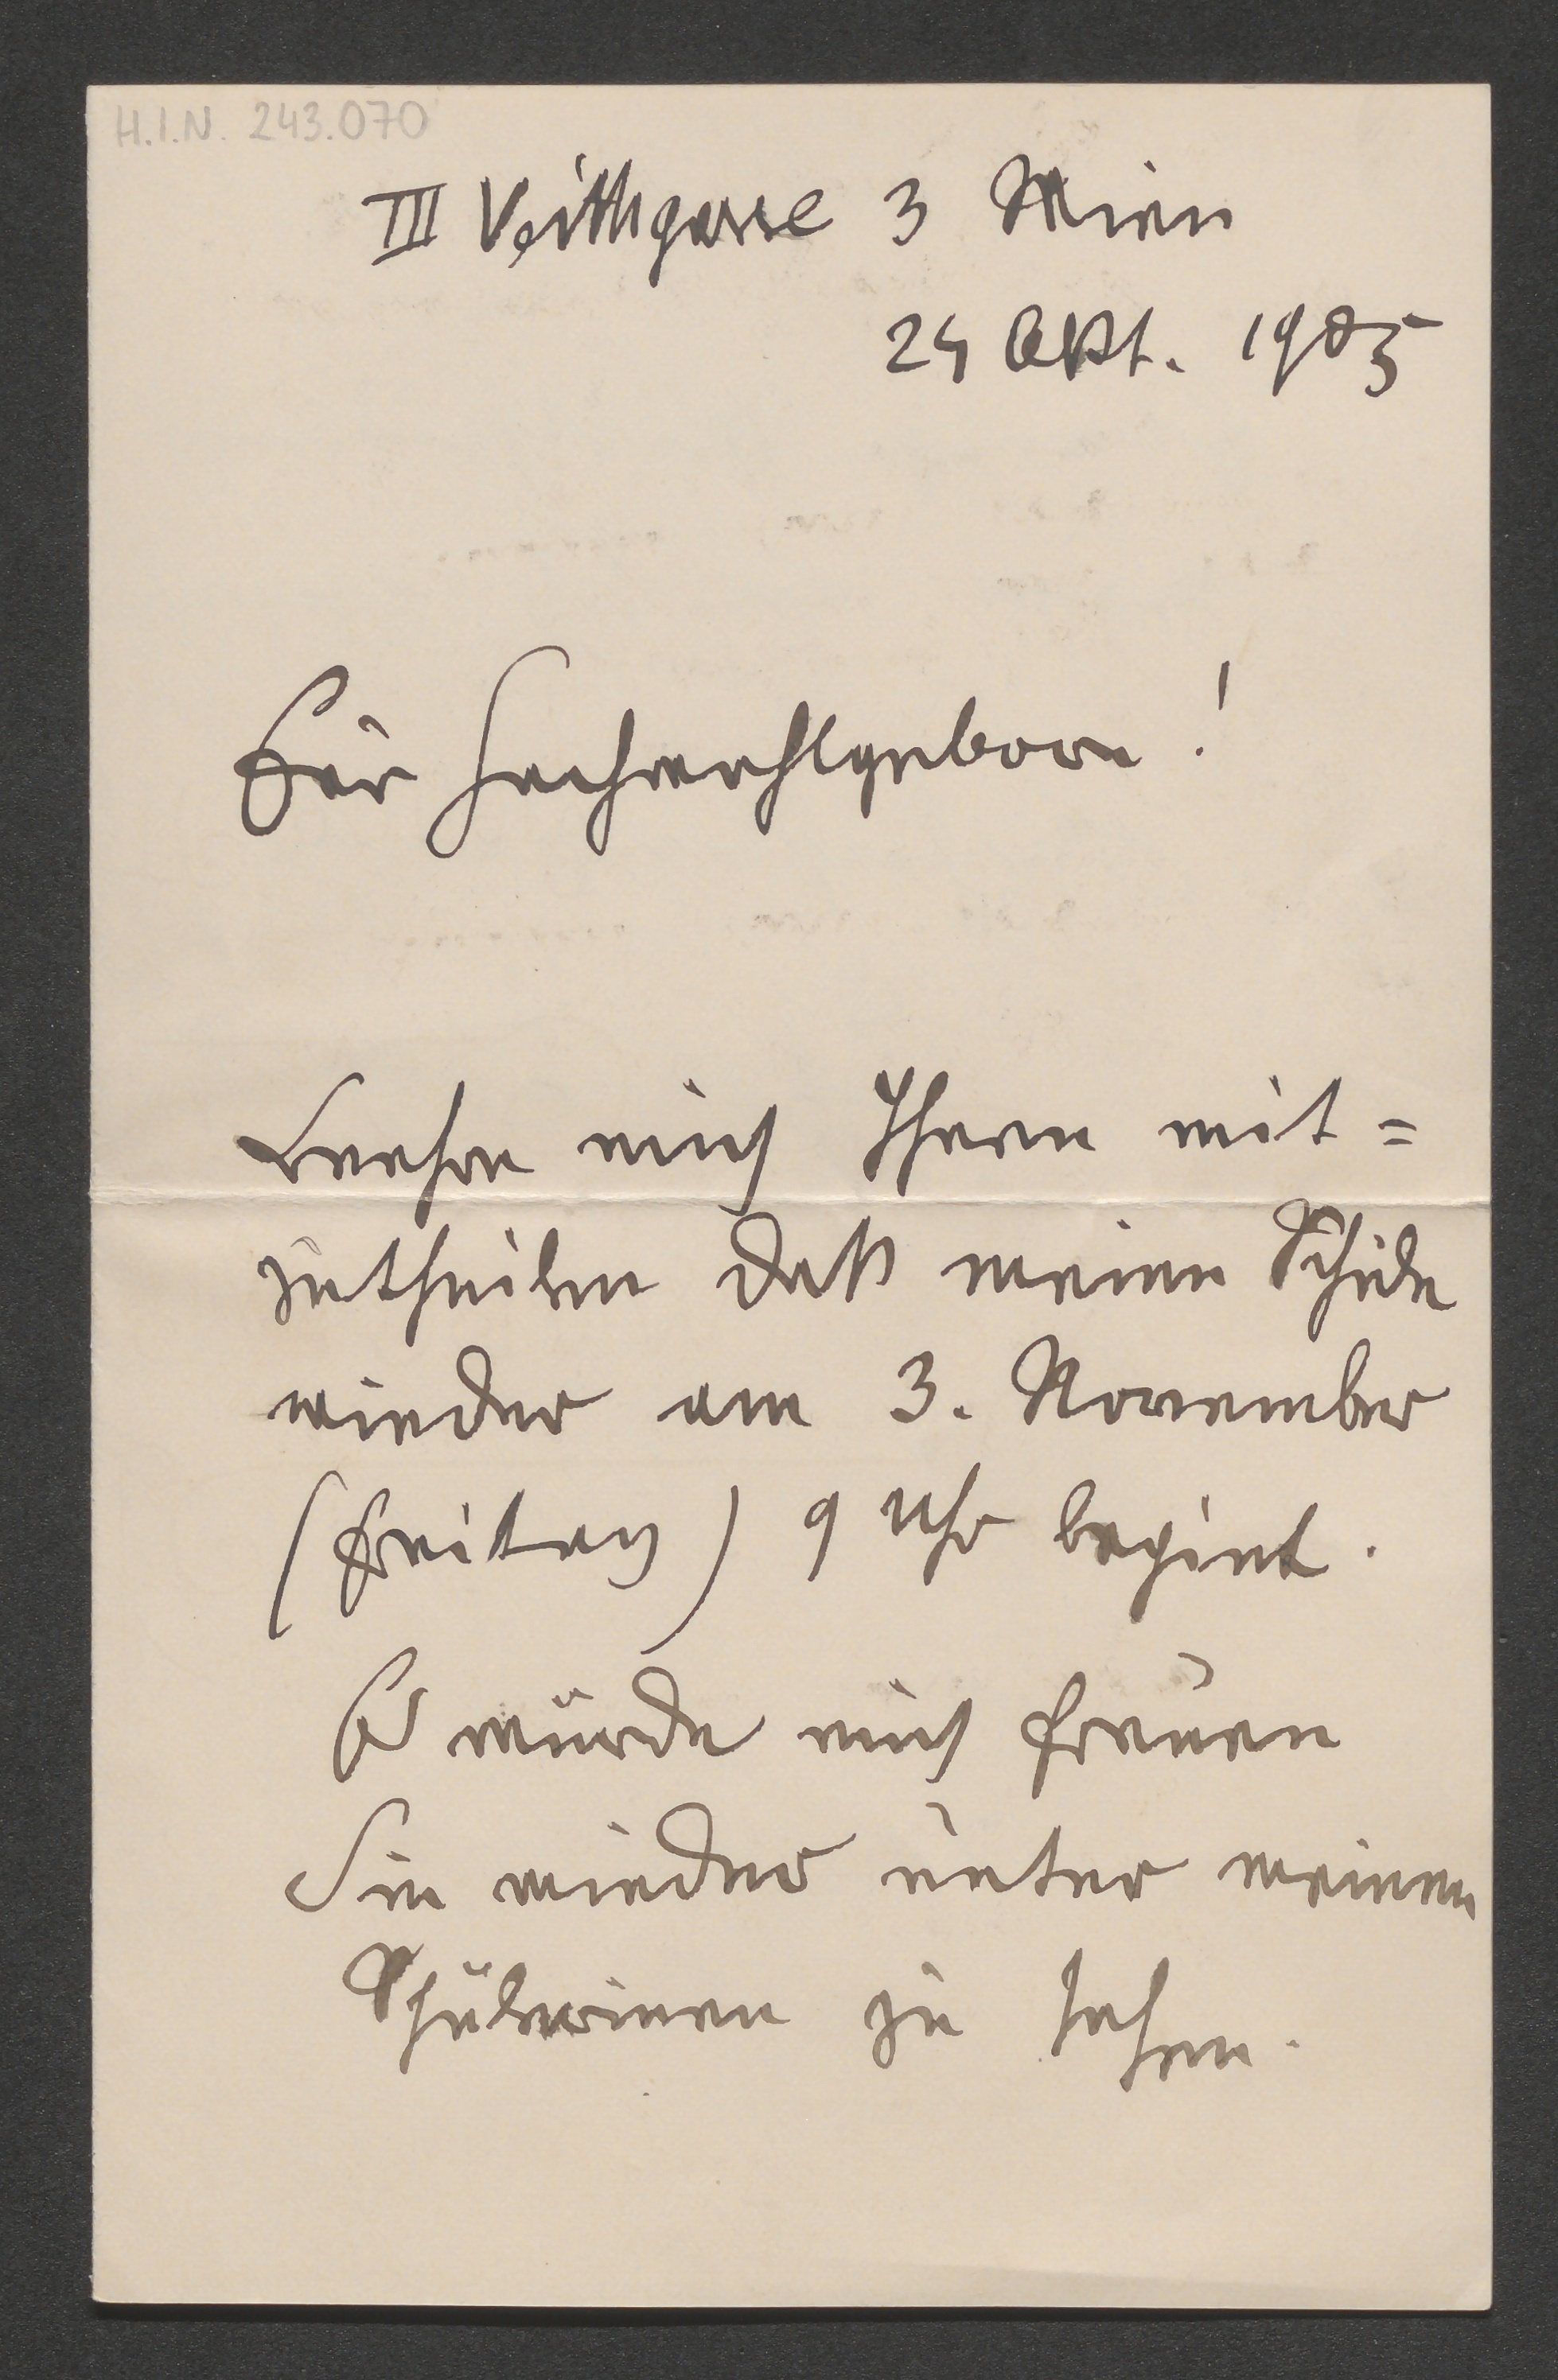 H.I.N. 243.070
III Veithgasse 3 Wien
24 Okt. 1905
Euer Hochwohlgeboren!
Beehre mich Ihnen mit=
zutheilen daß meine Schule
wieder am 3. November
(Freitag) 9 Uhr begint.
Es würde mich freuen
Sie wieder unter meinen
Schülerinen zu sehen.